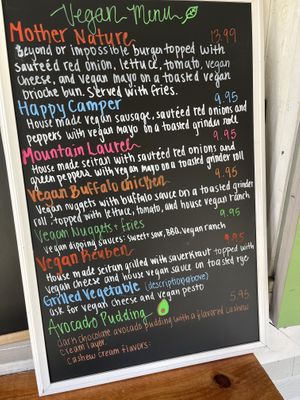 Vegan Menu
Mother Nature 13.99
Beyond or impossible burger topped with
sautéed red onion, lettuce, tomato, vegan
cheese, and vegan mayo on a toasted vegan
brioche bun. Served with fries.
Happy Camper 9.95
House made vegan sausage, sautéed red onions and
peppers with vegan mayo on a toasted grinder roll
Mountain Laurel 9.95
House made seitan with sautéed red onions and
green peppers with vegan mayo on a toasted grinder roll
Vegan Buffalo Chicken 9.95
Vegan nuggets with buffalo sauce on a toasted grinder
roll topped with lettuce, tomato, and house vegan ranch
Vegan Nuggets + Fries 9.95
Vegan dipping sauces: sweet + sour, BBQ, vegan ranch
Vegan Reuben 9.95
House made seitan grilled with sauerkraut topped with
vegan cheese and house vegan sauce on toasted rye
Grilled Vegetable (description above)
ask for vegan cheese and vegan pesto
Avocado Pudding 5.95
dark chocolate avocado pudding with a flavored cashew
cream layer.
cashew cream flavors: